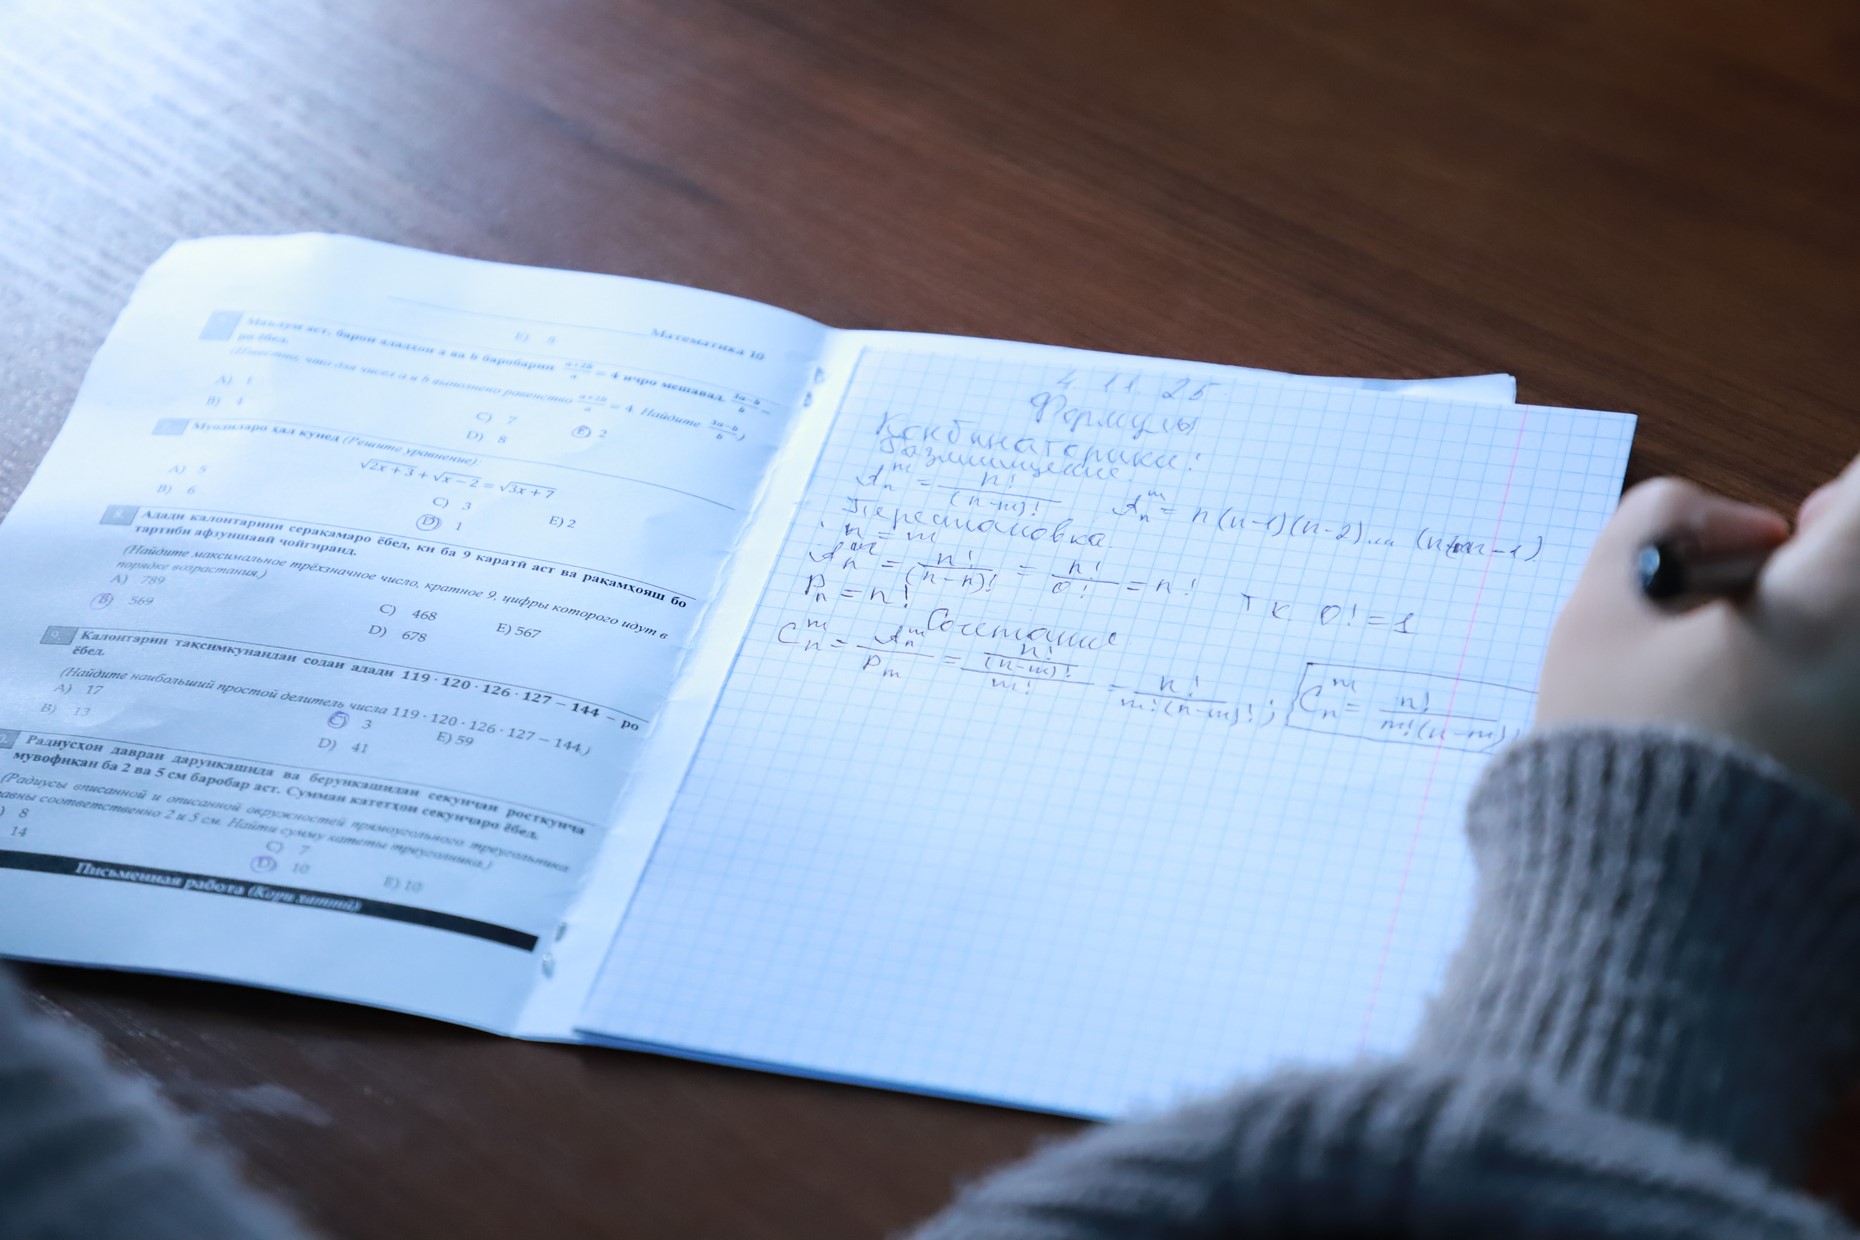 E) 8
Математика 10
Маълум аст, барои ададҳои a ва b баробарии (a+2b)/a = 4 иҷро мешавад. (3a−b)/b –
ро ёбед.
(Известно, что для чисел a и b выполнено равенство (a+2b)/a = 4. Найдите (3a−b)/b.)
A) 1
B) 4
C) 7
D) 8
E) 2
7. Муодиларо ҳал кунед (Решите уравнение):
√2x + 3 + √x − 2 = √3x + 7
A) 5
B) 6
C) 3
D) 1
E) 2
8. Адади калонтарини серақамаро ёбед, ки ба 9 каратӣ аст ва рақамҳояш бо
тартиби афзуншавӣ ҷойгиранд.
(Найдите максимальное трёхзначное число, кратное 9, цифры которого идут в
порядке возрастания.)
A) 789
B) 569
C) 468
D) 678
E) 567
9. Калонтарин тақсимкунандаи содаи адади 119 · 120 · 126 · 127 − 144 – ро
ёбед.
(Найдите наибольший простой делитель числа 119 · 120 · 126 · 127 − 144.)
A) 17
B) 13
C) 3
D) 41
E) 59
Радиусҳои давраи дарункашида ва берункашидаи секунҷаи росткунҷа
мувофиқан ба 2 ва 5 см баробар аст. Суммаи катетҳои секунҷаро ёбед.
(Радиусы вписанной и описанной окружностей прямоугольного треугольника
равны соответственно 2 и 5 см. Найти сумму катеты треугольника.)
) 8
14
C) 7
D) 10
E) 10
Письменная работа (Кори хаттӣ)
4 11. 25
Формулы
Комбинаторики:
Размищение.
Aₙᵐ = n!/(n−m)! Aₙᵐ = n(n−1)(n−2)... (n−m−1)
Перестановка
n = m
Aₙᵐ = n!/(n−n)! = n!/0! = n! т к 0! = 1
Pₙ = n!
Сочетание
Cₙᵐ = Aₙᵐ/Pₘ = (n!/(n−m)!)/m! = n!/m!(n−m)! ; Cₙᵐ = n!/m!(n−m)!